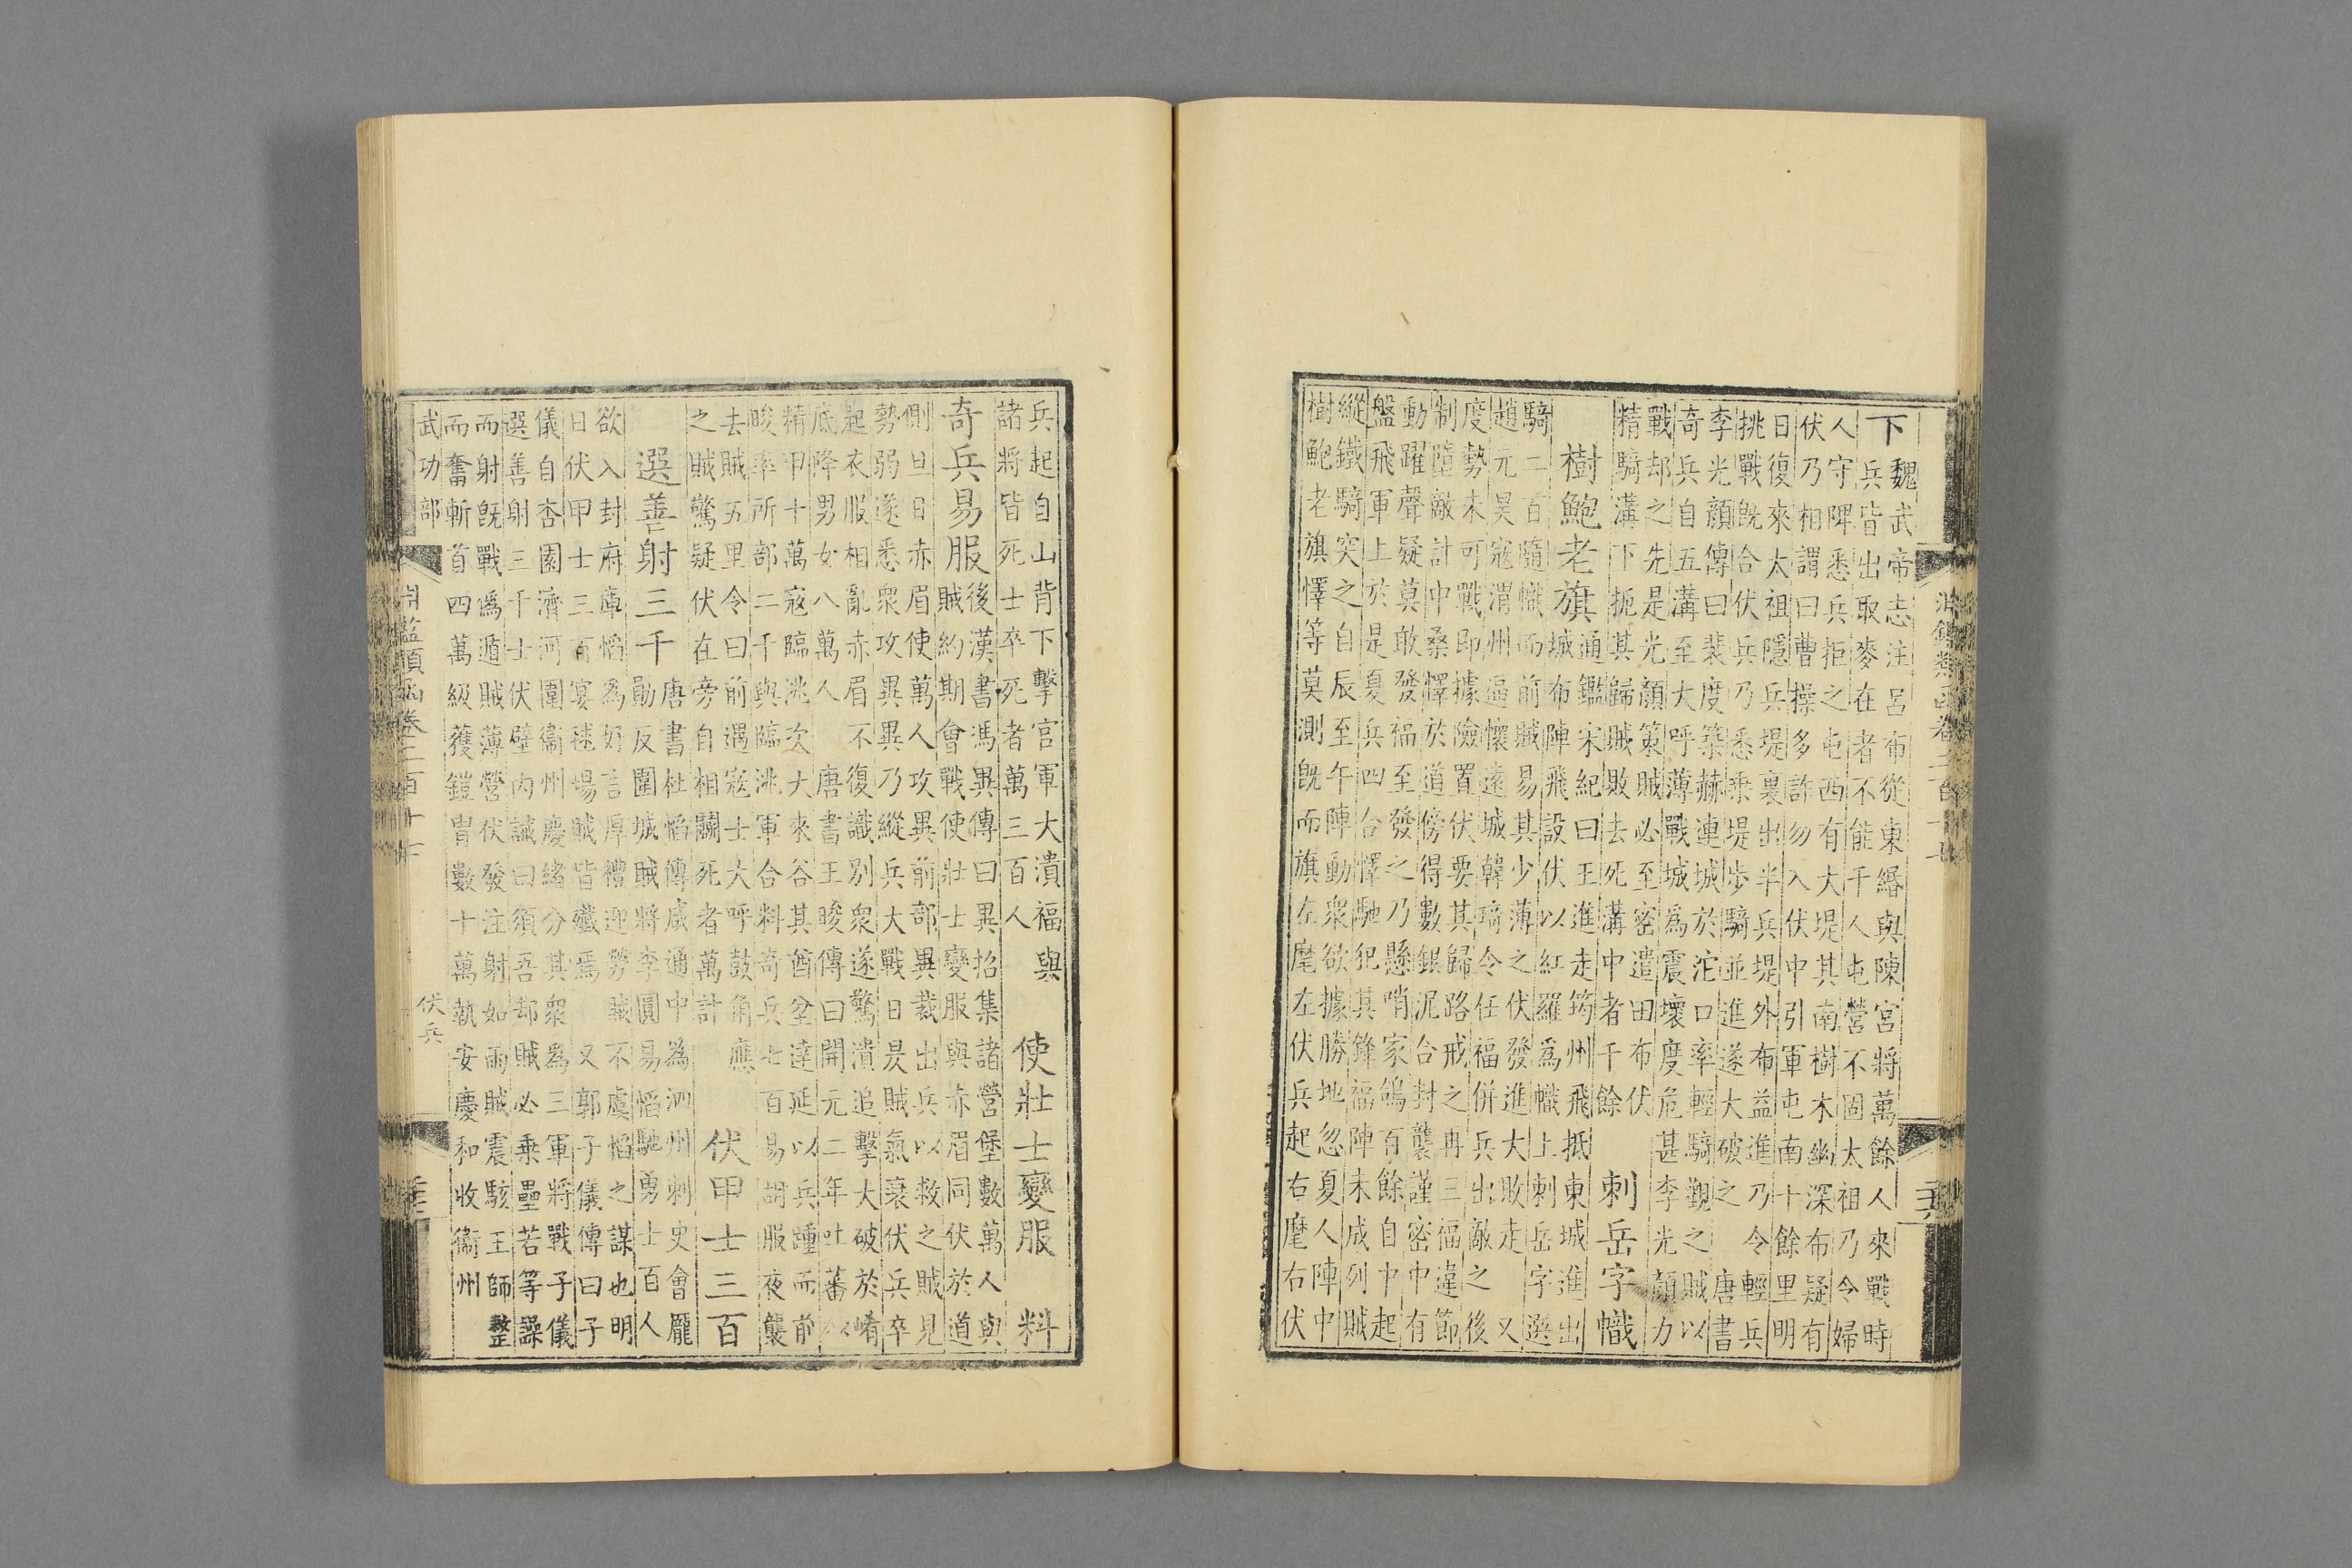 下
魏武帝志注呂布從東緡與陳宮將萬餘人來戰時
兵皆出取麥在者不能千人屯營不固太祖乃令婦
人守陴悉兵拒之屯西有大堤其南樹木幽深布疑有
伏乃相謂曰曹操多詐勿入伏中引軍屯南十餘里明
日復來太祖隱兵堤裏出半兵堤外布益進乃令輕兵
挑戰旣合伏兵乃悉乘堤步騎並進遂大破之 唐書
李光顏傳曰裴度築赫連城於沱口率輕騎觀之賊以
奇兵自五溝至大呼薄戰城為震壞度危甚李光顏力
戰却之先是光顏策賊必至密遣田布伏
精騎溝下扼其歸賊敗去死溝中者千餘
刺岳字幟
樹鮑老旗
通鑑宋紀曰王進走筠州飛抵東城進出
城布陣飛設伏以紅羅為幟上刺岳字選
騎二百隨幟而前賊易其少薄之伏發進大敗走 又
趙元昊寇渭州逼懷遠城韓琦令任福併兵出敵之後
度勢未可戰即據險置伏要其歸路戒之再三福違節
制墮敵計中桑懌於道傍得數銀泥合封襲謹密中有
動躍聲疑莫敢發福至發之乃懸哨家鴿百餘自中起
盤飛軍上於是夏兵四合懌馳犯其鋒福陣未成列賊
縱鐵騎突之自辰至午陣動衆欲據勝地忽夏人陣中
樹鮑老旗懌等莫測旣而旗左麾左伏兵起右麾右伏
兵起自山背下擊官軍大潰福與
諸將皆死士卒死者萬三百人
使壯士變服 料
奇兵易服
後漢書馮異傳曰異招集諸營堡數萬人與
賊約期會戰使壯士變服與赤眉同伏於道
側旦日赤眉使萬人攻異前部異裁出兵以救之賊見
勢弱遂悉衆攻異異乃縱兵大戰日昃賊氣衰伏兵卒
起衣服相亂赤眉不復識別衆遂驚潰追擊大破於崤
底降男女八萬人 唐書王晙傳曰開元二年吐蕃以
精甲十萬寇臨洮次大來谷其酋坌達延以兵踵而前
晙率所部二千與臨洮軍合料奇兵七百易胡服夜襲
去賊五里令曰前遇寇士大呼鼓角應
之賊驚疑伏在旁自相鬭死者萬計
伏甲士三百
選善射三千
唐書杜慆傳咸通中為泗州刺史會龐
勛反圍城賊將李圓易慆馳勇士百人
欲入封府庫慆為好言厚禮迎勞賊不虞慆之謀也明
日伏甲士三百宴毬場賊皆殲焉 又郭子儀傳曰子
儀自杏園濟河圍衞州慶緒分其衆為三軍將戰子儀
選善射三千士伏壁內誡曰須吾却賊必乘壘若等譟
而射旣戰偽遁賊薄營伏發注射如雨賊震駭王師整
而奮斬首四萬級獲鎧冑數十萬執安慶和收衞州
武功部 伏兵